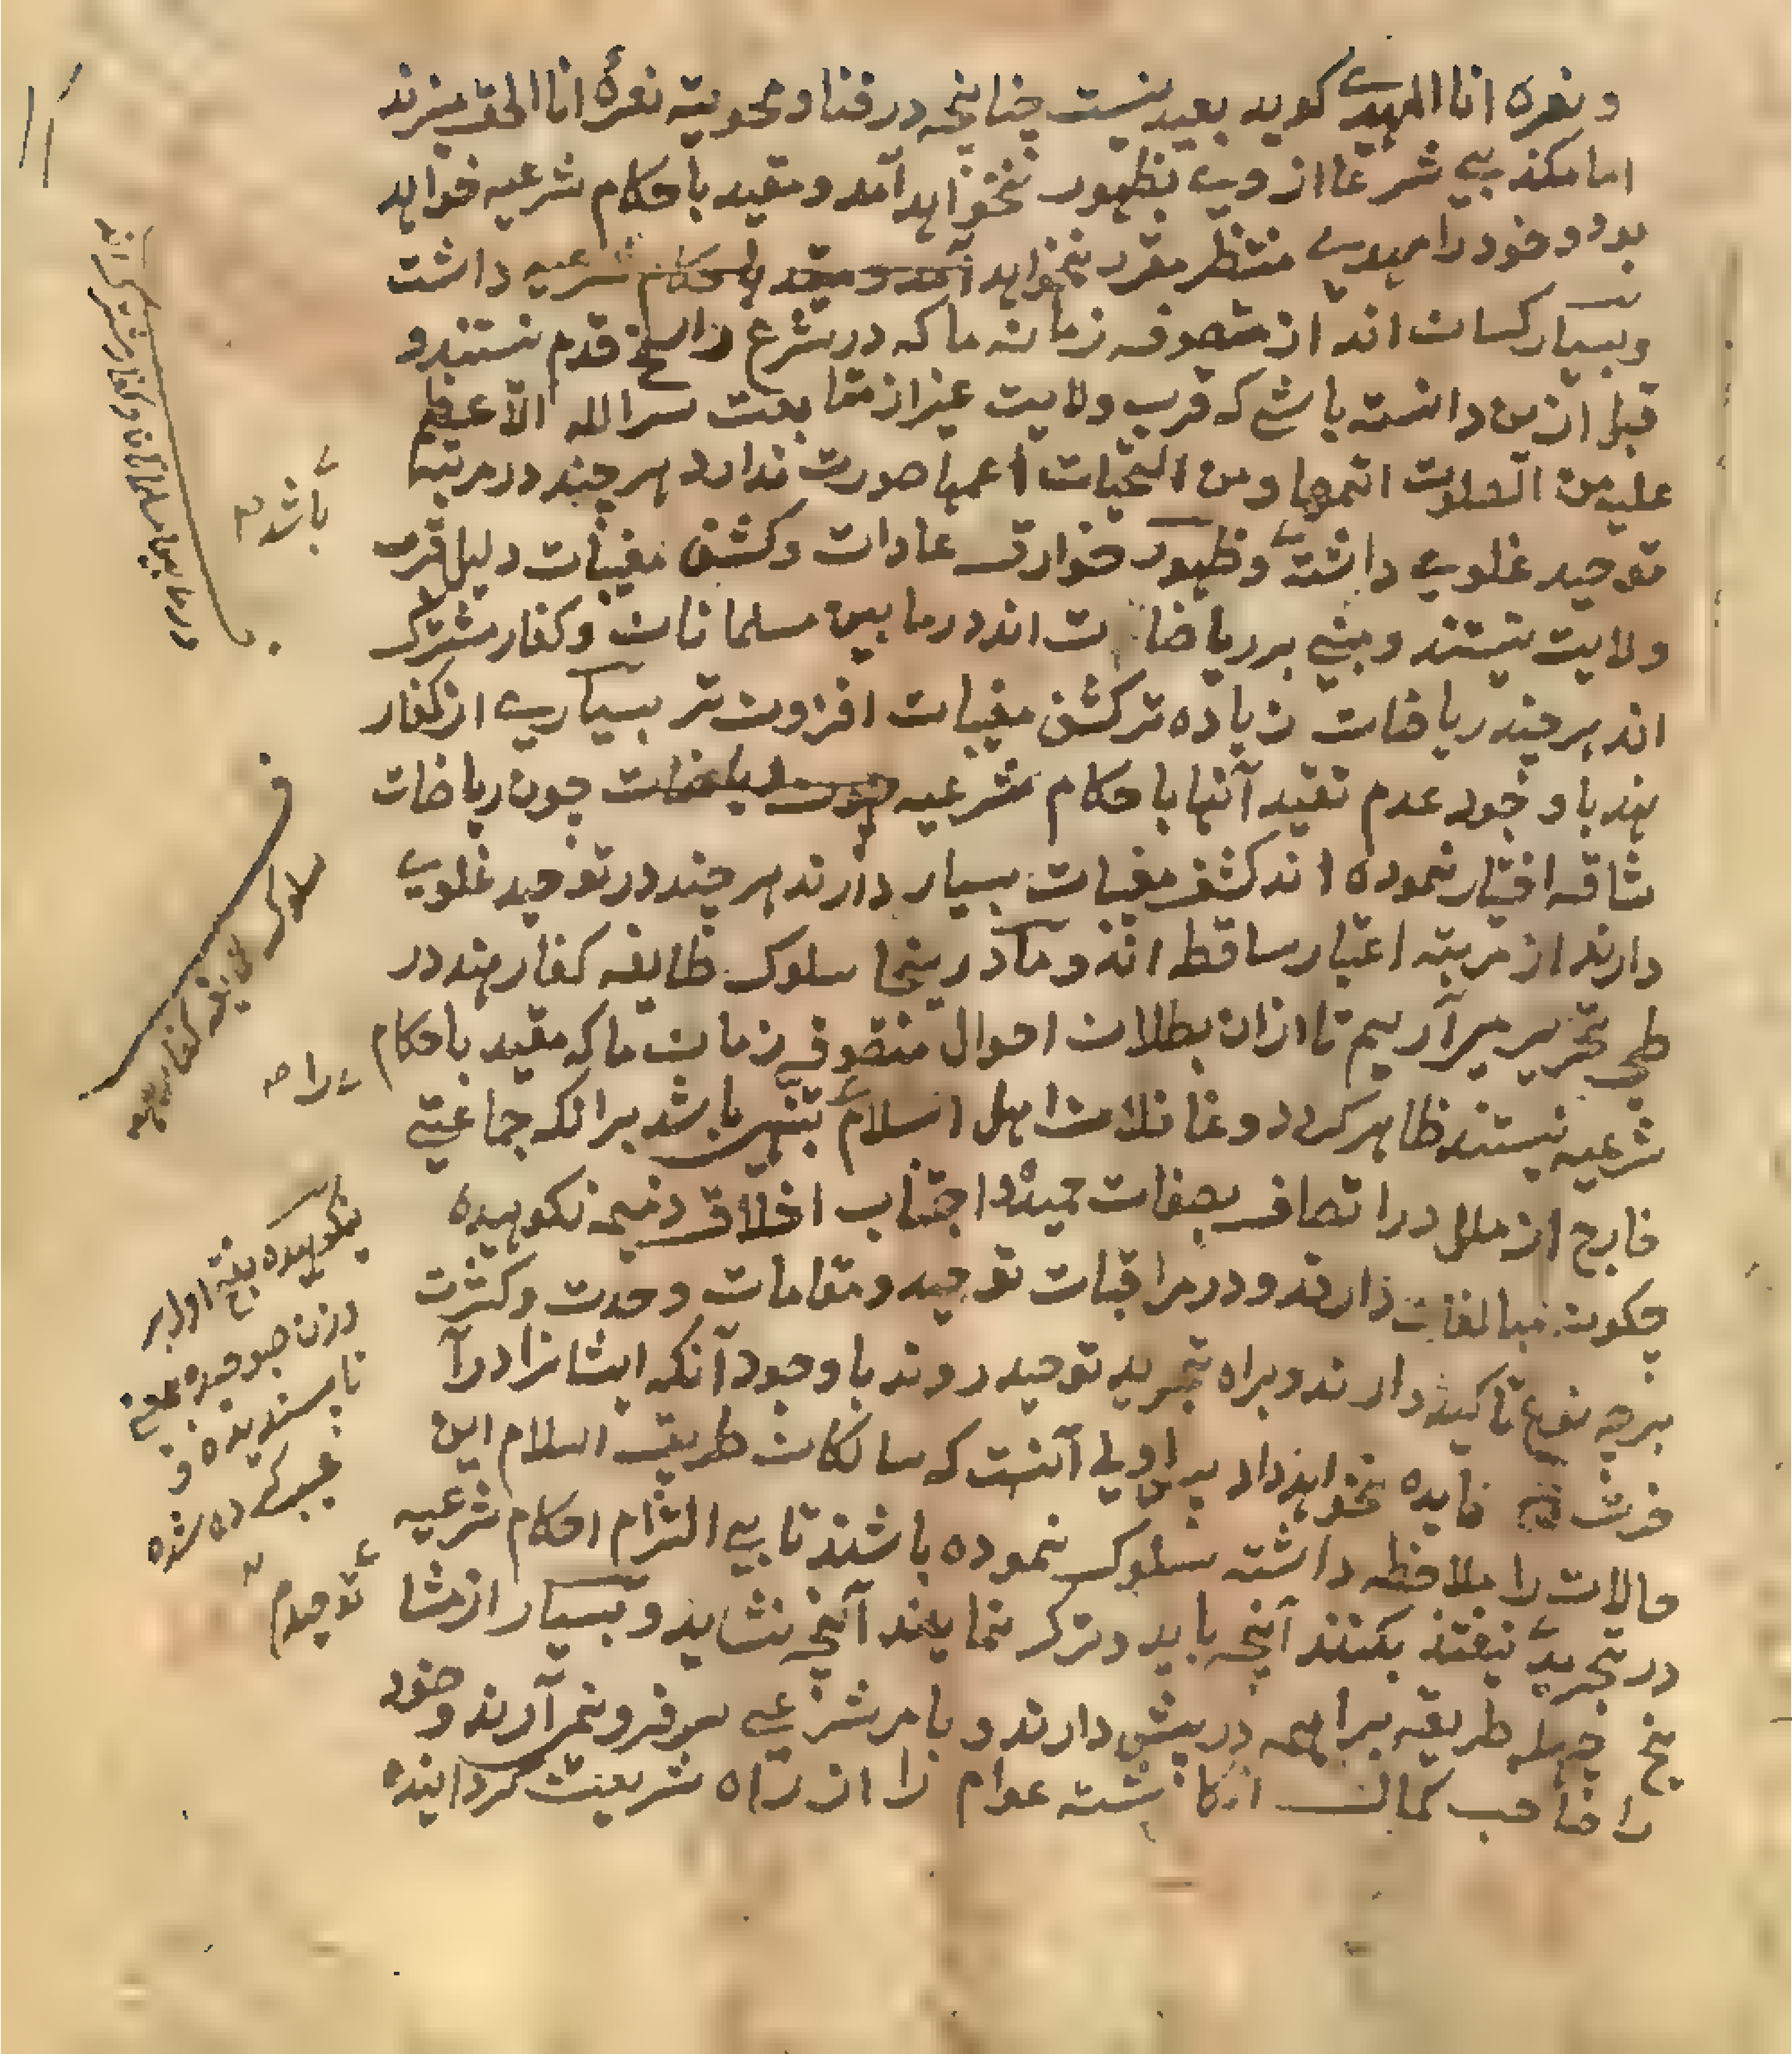 و نعره انا المهدی کوید بعید نیست چنانچه در فنا و محویته نعرهٔ انا الحق میزند
اما مکذبی شرعا از وی بظهور نخواهد آمد و مقید باحکام شرعیه خواهد
بود و خود را مهدی منتظر مقرر نخواهد آمد و مقید باحکام شرعیه داشت
و بسیار کسان اند از متصوفه زمانه ما که در شرع راسخ قدم نیستند و
قبل ازین دانسته باشی که قرب ولایت غیر از متابعت سرالله الاعظم
علیه من الصلوت اتمها و من التحیات اعمها صورت ندارد هر چند در مرتبه
توحید غلوی داشته و ظهور خوارق عادات و کشف مغیبات دلیل قرب
ولایت نیستند و مبنی بر ریاضات اند در ما بین مسلمانان و کفار مشترک
اند هر چند ریاضات زیاده تر کشف مغیبات افزون تر بسیاری از کفار
هند باوجود عدم تقید آنها باحکام شرعیه چون ریاضات چون ریاضات
شاقه اختیار نموده اند کشف مغیبات بسیار دارند هر چند در توحید غلوی
دارند از مرتبه اعتبار ساقطه اند و ما درینجا سلوک طایفه کفار هند در
طی تحریر میرآریم تا ازان بطلان احوال متصوفی زمان ما که مقید باحکام
شرعیه نیستند ظاهر کردد و غافلان اهل اسلام تنبهی باشد برانکه جماعتی
خارج از ملل در اتصاف بصفات حمیده و اجتناب اخلاق ذمیمه نکوهیده
چکونه مبالغات دارند و در مراقبات توحید و مقامات وحدت و کثرت
برچه نوع تاکید دارند و براه تجرید توحید روند باوجود آنکه ایشانرا در آ
خرت فایده نخواهد داد پس اولی آنست که سالکان طریق اسلام این
حالات را ملاحظه داشته سلوک نموده باشند تا بی التزام احکام شرعیه
در تجرید نیفتند بکنند آنچه باید و ترک نمایند آنچه نشاید و بسیار از مشا
یخ جهله طریقه براهمه در پیش دارند و بامر شرعی سر فرو نمی آورند و خود
را صاحب کمال انکاشته عوام را از راه شریعت کردانیده
باشد
سلوک طایفه کفار
را
نکوهیده
ناپسندیده و
عیب کرده شده
توحیدم